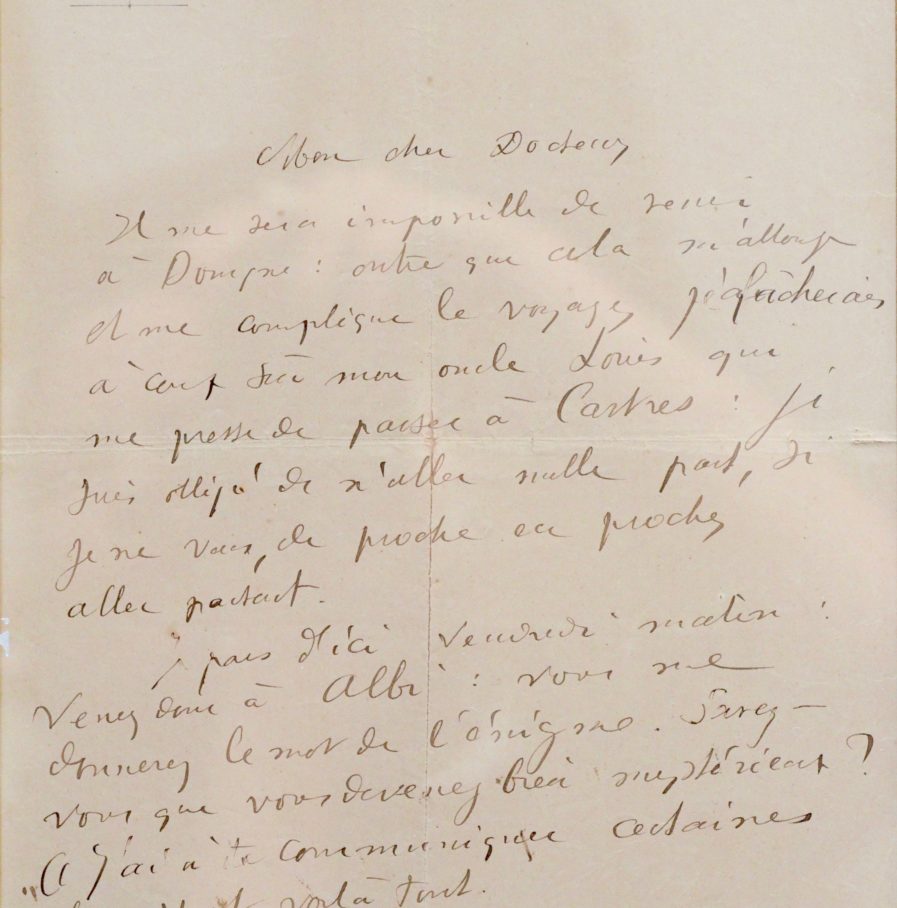 Mon cher Docteur,
Il me sera impossible de venir
à Dompne : outre que cela m'allonge
et me complique le voyage, je fâcherais
à coup sûr mon oncle Louis qui
me presse de passer à Castres : je
suis obligé de n'aller nulle part, si
je ne veux, de proche en proche,
aller partout.
Je pars d'ici Vendredi matin :
Venez donc à Albi : vous me
donnerez le mot de l'énigme. Savez-
vous que vous devenez bien mystérieux ?
"J'ai à te communiquer certaines
voilà tout.